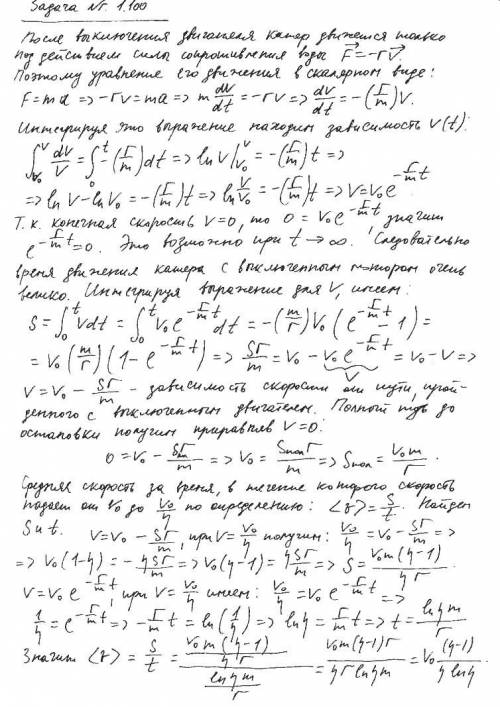 Задача № 1.100
После выключения двигателя катер движется только
под действием силы сопротивления воды F⃗ = -rV⃗.
Поэтому уравнение его движения в скалярном виде:
F = ma => -rV = ma => m dV/dt = -rV => dV/dt = -(r/m)V.
Интегрируя это выражение находим зависимость V(t):
∫_{V₀}^{V} dV/V = ∫_0^t -(r/m)dt => ln V|_{V₀}^{V} = -(r/m)t =>
=> ln V - ln V₀ = -(r/m)t => ln V/V₀ = -(r/m)t => V = V₀e^{-r/m t}
Т.к. конечная скорость V=0, то 0 = V₀e^{-r/m t}, значит
e^{-r/m t} = 0. Это возможно при t → ∞. Следовательно
время движения катера с выключенным мотором очень
велико. Интегрируя выражение для V, имеем:
S = ∫_0^t Vdt = ∫_0^t V₀e^{-r/m t}dt = -(m/r)V₀(e^{-r/m t} - 1) =
= V₀(m/r)(1 - e^{-r/m t}) => Sr/m = V₀ - V₀e^{-r/m t} = V₀ - V =>
V
V = V₀ - Sr/m - зависимость скорости от пути, прой-
денного с выключенным двигателем. Полный путь до
остановки получим приравняв V=0:
0 = V₀ - Sr/m => V₀ = Sпол r/m => Sпол = V₀m/r.
Средняя скорость за время, в течение которого скорость
падает от V₀ до V₀/η по определению: <V> = S/t. Найдем
S и t. V = V₀ - Sr/m, при V = V₀/η получим: V₀/η = V₀ - Sr/m =>
=> V₀(1-η) = -ηSr/m => V₀(η-1) = ηSr/m => S = V₀m(η-1)/ηr.
V = V₀e^{-r/m t}, при V = V₀/η имеем: V₀/η = V₀e^{-r/m t} =>
1/η = e^{-r/m t} => -r/m t = ln(1/η) => ln η = r/m t => t = ln η m/r
Значит <V> = S/t = (V₀m(η-1)/ηr)/(ln η m/r) = V₀m(η-1)r/ηr ln η m = V₀ (η-1)/η ln η